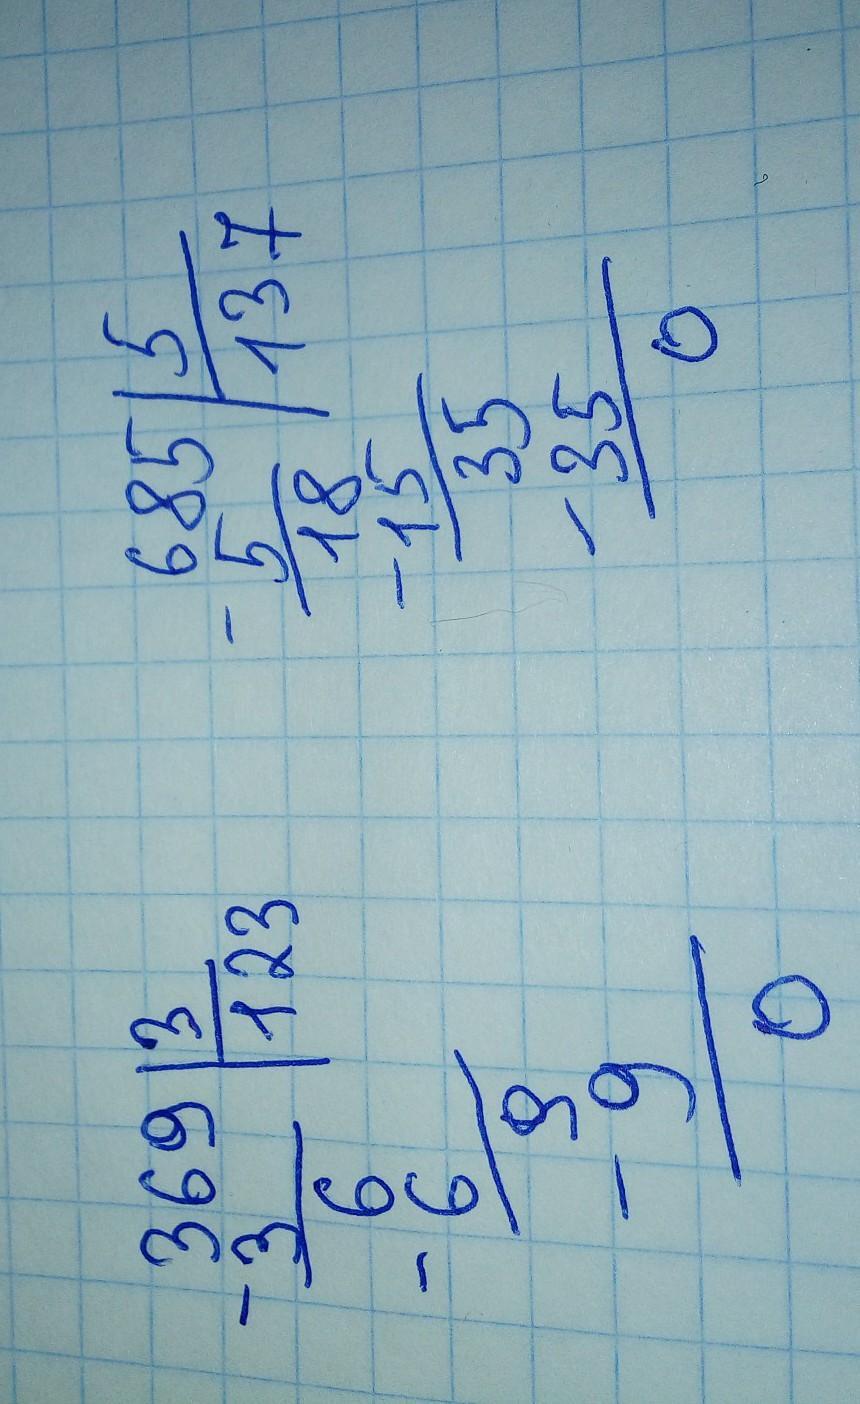 369|3
-3 123
6
-6
9
-9
0
685|5
-5 137
18
-15
35
-35
0